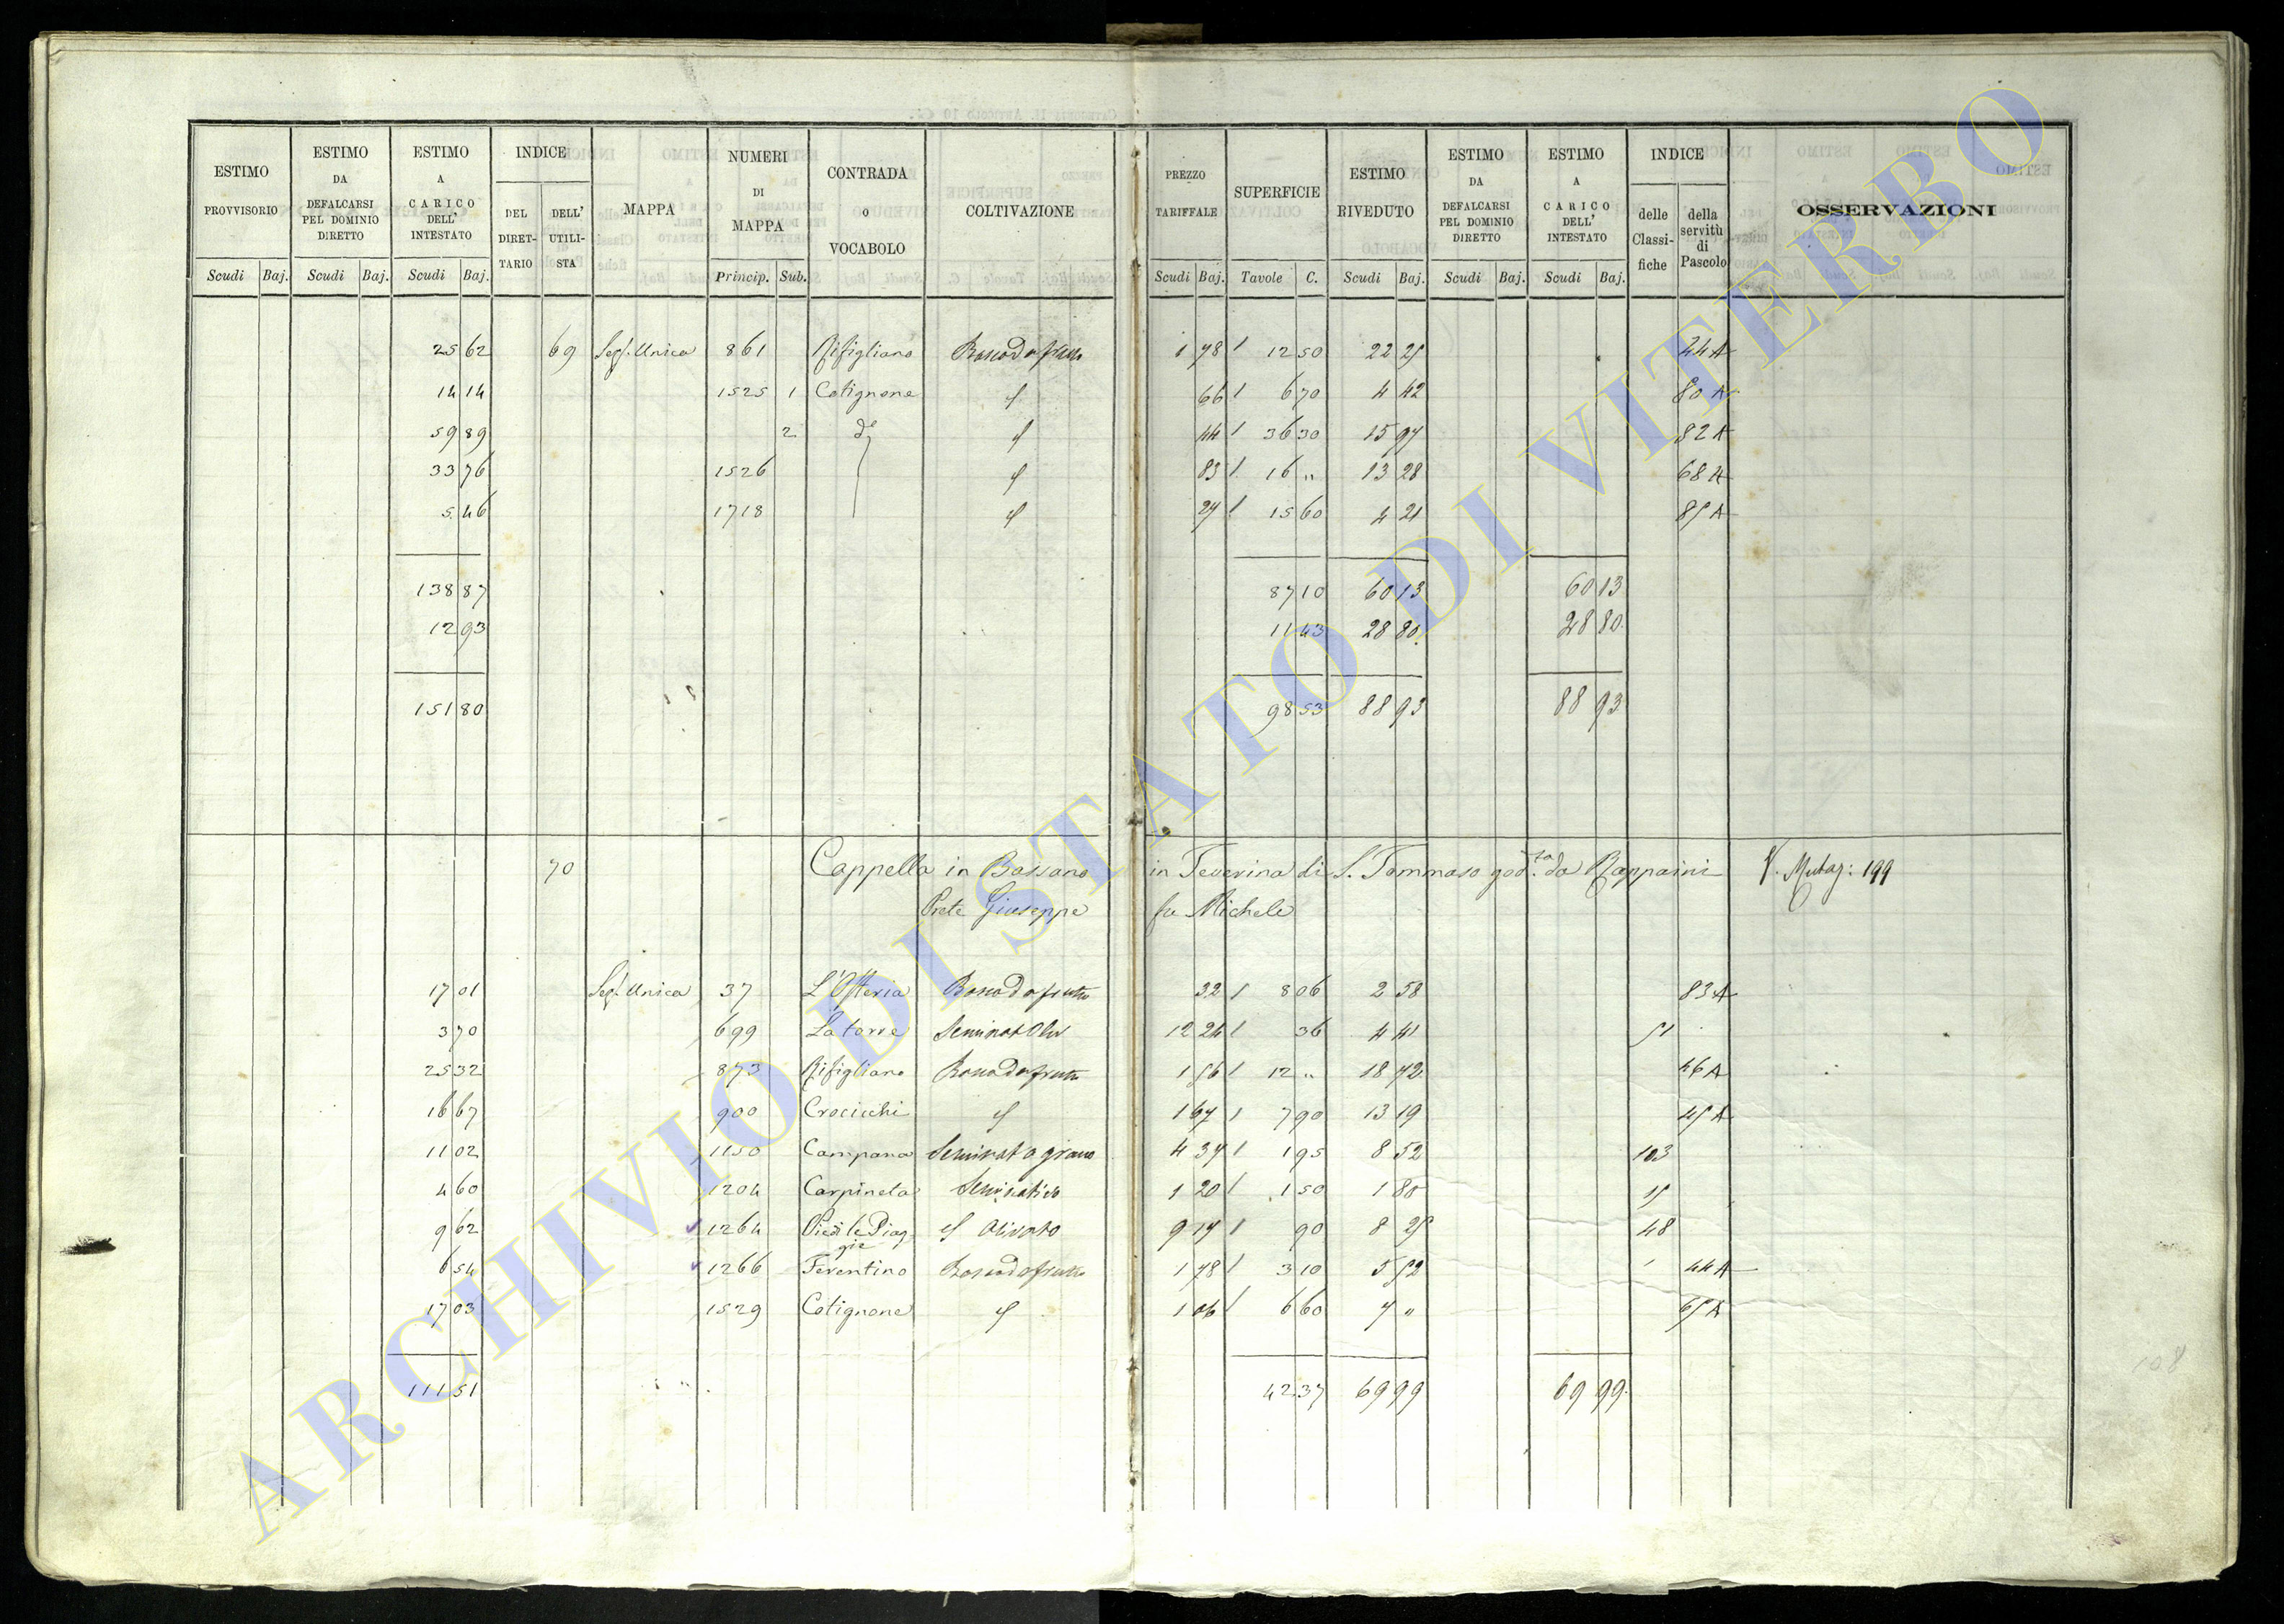 ESTIMO PROVVISORIO | ESTIMO DA DEFALCARSI PEL DOMINIO DIRETTO | ESTIMO A CARICO DELL' INTESTATO | INDICE | MAPPA | NUMERI DI MAPPA | CONTRADA O VOCABOLO | COLTIVAZIONE | PREZZO TARIFFALE | SUPERFICIE | ESTIMO RIVEDUTO | ESTIMO DA DEFALCARSI PEL DOMINIO DIRETTO | ESTIMO A CARICO DELL' INTESTATO | INDICE | OSSERVAZIONI
DEL DIRET-TARIO | DELL' UTILI-STA | delle Classi-fiche | della servitù di Pascolo
Scudi Baj. | Scudi Baj. | Scudi Baj. | Princip. Sub. | Scudi Baj. | Tavole C. | Scudi Baj. | Scudi Baj. | Scudi Baj.
25 62 | 69 | Sez. Unica | 861 | Rifigliano | Bosco da frutto | 1 78 | 12 50 | 22 25 | 44 A
14 14 | 1525 | 1 | Cotignone | 66 | 6 70 | 4 42 | 80 A
59 89 | 2 | do | 44 | 36 30 | 15 97 | 82 A
33 76 | 1526 | 83 | 16 " | 13 28 | 68 A
5 46 | 1718 | 27 | 15 60 | 4 21 | 85 A
138 87 | 87 10 | 60 13 | 60 13
12 93 | 11 43 | 28 80 | 28 80
151 80 | 98 53 | 88 93 | 88 93
70 | Cappella in Bassano in Teverina di S. Tommaso god.ta da Rappaini | V. Mutaz: 199
Prete Giuseppe fu Michele
17 01 | Sez. Unica | 37 | L'Osteria | Bosco da frutto | 32 | 8 06 | 2 58 | 83 A
3 70 | 699 | La torre | Seminat Oliv | 12 24 | 36 | 4 41 | 51
25 32 | 873 | Rifigliano | Bosco da frutto | 1 56 | 12 " | 18 72 | 46 A
16 67 | 900 | Crocicchi | 1 67 | 7 90 | 13 19 | 45 A
11 02 | 1150 | Campana | Seminat a grano | 4 37 | 1 95 | 8 52 | 103
4 60 | 1204 | Carpineta | Seminativo | 1 20 | 1 50 | 1 80 | 15
9 62 | 1264 | Piedi le Piag gie | Olivato | 9 17 | 90 | 8 25 | 48
6 54 | 1266 | Ferentino | Bosco da frutto | 1 78 | 3 10 | 5 52 | 44 A
17 03 | 1529 | Cotignone | 1 06 | 6 60 | 7 " | 65 A
111 51 | 42 37 | 69 99 | 69 99
108
ARCHIVIO DI STATO DI VITERBO